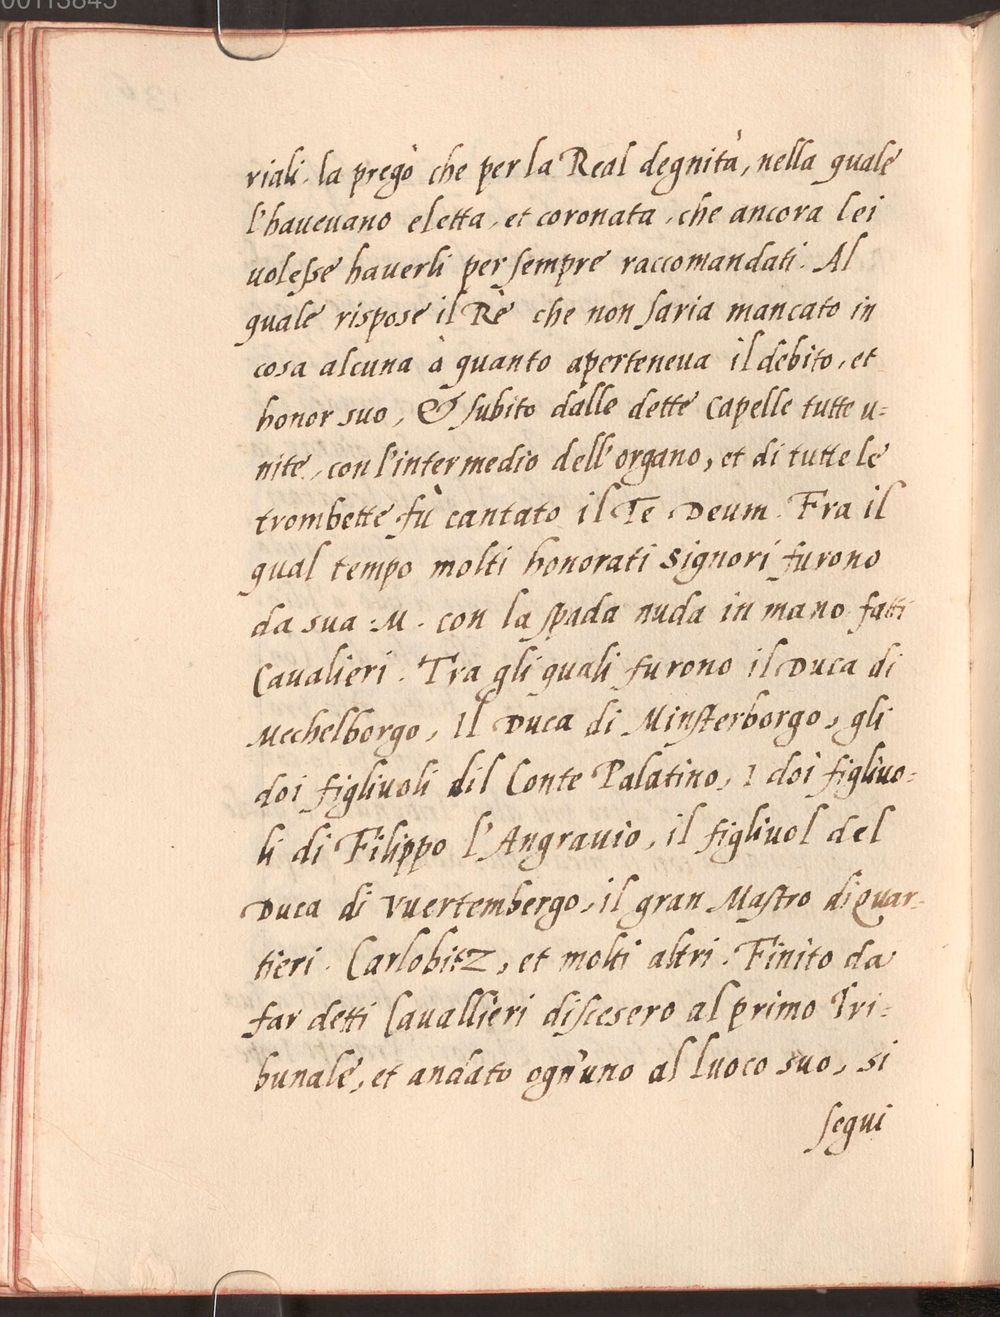 00113845
riali, la pregò che per la Real degnità, nella quale
l'haueuano eletta, et coronata, che ancora lei
uolesse hauerli per sempre raccomandati. Al
quale rispose il Rè che non saria mancato in
cosa alcuna à quanto aperteneua il debito, et
honor suo, & subito dalle dette Capelle tutte u-
nite, con l'intermedio dell'organo, et di tutte le
trombette fù cantato il Te Deum. Fra il
qual tempo molti honorati Signori furono
da sua M. con la spada nuda in mano fatti
Caualieri. Tra gli quali furono il Duca di
Mechelborgo, Il Duca di Minsterborgo, gli
doi figliuoli dil Conte Palatino, I doi figliuo-
li di Filippo l'Angrauio, il figliuol del
Duca di Vuertembergo, il gran Mastro di Quar-
tieri. Carlobitz, et molti altri. Finito da
far detti Cauallieri discesero al primo Tri-
bunale, et andato ogn'uno al luoco suo, si
segui